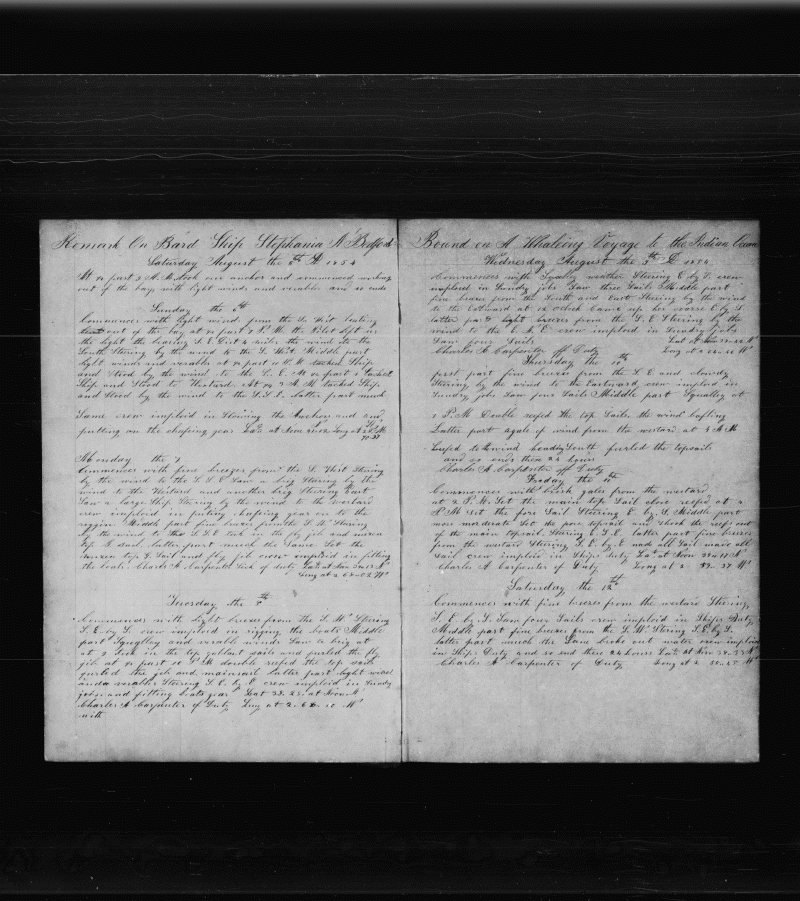 Remark On Bard Ship Stephania N Bedford
Saturday August the 5th D 1854
At ½ part 3 A M took our anchor and commenced working
out of the bay with light winds and verable and so ends
Sunday the 6th
Commences with light wind from the Sd West beating
out of the bay at ½ part 7 P.M. the Pilot left us
the light the bearing S.E. Dist 4 miles the wind at the
South Stering by the wind to the S. West Middle part
light winds and verable at
and Stood by the wind to the S. E. At ½ part 9 tacked
Ship and Stood to Westard. At ½ 7 A M tacked Ship
and Stood by the wind to the S.S.E. latter part much
Same crew imploid in Stowing the Anchors and and
putting on the chafing gear Lat at Noon Long at 2 P.M.
Monday the 7
Commences with fine breezes from the S. West Stering
by the wind to the S S E Saw a brig Stering by the
wind to the Westard and another brig Stering East
Saw a large Ship Stering by the wind to the westard
crew imploid in puting chafing gear on to the
riggin Middle part fine breezes from the S. W Stering
by the wind to the S.E took in the fly jib and mizen
top G Sail latter part much the Same Set the
mizen top G Sail and fly jib crew imploid in fitting
the boats Charles A Carpenter Sick of duty Lat at Noon
Long at 2 W
Tuesday the 8th
Commences with light breezes from the S. W Stering
S. E. by S. crew imploid in rigging the boats Middle
part Squalley and verable winds Saw a brig at
at 9 took in the top gallant sails and furled the fly
jib at ½ part 10 P M double reefed the top sails
furled the jib and mainsail latter part light wind
and verable Stering S. E. by E crew imploid in Sundry
jobs and fitting boats gear Lat 38.23. at Noon N
Charles A Carpenter of Duty Long at 2. W
with
Bound on A Whaleing Voyage to the Indian Ocean
Wednesday August the 9th D 1854
Commences with Squally weather Stering E by S. crew
imploid in Sundry jobs Saw three Sails Middle part
fine breezes from the South and East Stering by the wind
to the Eastward at 12 oclock Came up her corse E by S
latter part light breezes from the S. E Stering by the
wind to the E. N E crew imploid in Sundry jobs
Saw four Sails Lat at Noon
Charles A Carpenter off Duty Long at 2
Thursday the 10th
first part fine breezes from the S E and clowdy
Stering by the wind to the Eastward crew imploid in
Sundry jobs Saw four Sails Middle part Squalley at
1 P.M. Double reefed the top Sails the wind
Latter part a gale of wind from the westard at 4 A M
reefed heading South furled the topsails
and so ends these 24 hours
Charles A Carpenter off Duty
Friday the 11th
Commences with brisk gales from the westard
at 2 P.M. Set the main top Sail close reefed at
P M Set the fore Sail Stering E. by S. Middle part
more morderate Set the fore topsail and Shook the reefs out
of the main topsail Stering E.S.E. latter part fine breezes
from the westard Stering S. E by E made all Sail
Sail crew imploid in Ships duty Lat at Noon N
Charles A Carpenter of Duty Long at 2 W
Saturday the 12th
Commences with fine breezes from the westard Stering
S. E. by S. Saw four Sails crew imploid in Ships Duty
Middle part fine breezes from the S. W. Stering S. E by S.
latter part much the Same broke out water crew imploid
in Ships Duty and so ends these 24 hours Lat at Noon N
Charles A Carpenter of Duty Long at 2 W